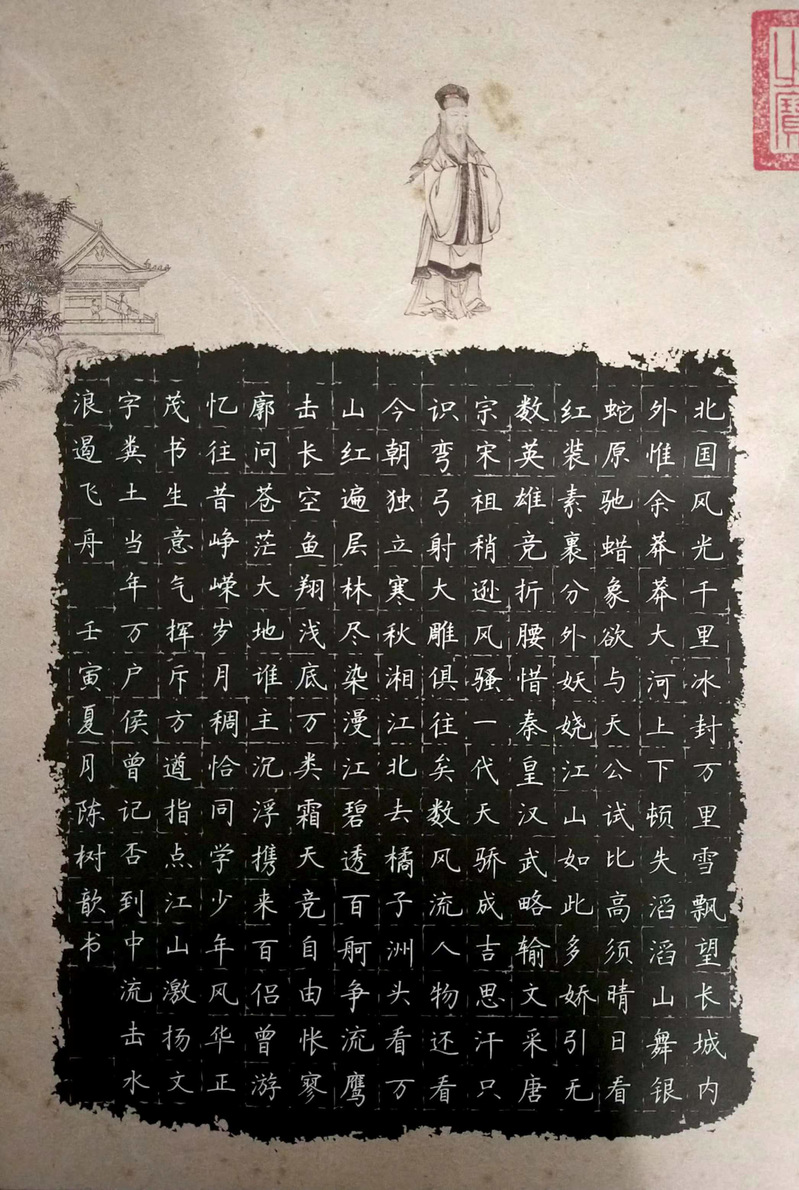 北国风光千里冰封万里雪飘望长城内
外惟余莽莽大河上下顿失滔滔山舞银
蛇原驰蜡象欲与天公试比高须晴日看
红装素裹分外妖娆江山如此多娇引无
数英雄竞折腰惜秦皇汉武略输文采唐
宗宋祖稍逊风骚一代天骄成吉思汗只
识弯弓射大雕俱往矣数风流人物还看
今朝独立寒秋湘江北去橘子洲头看万
山红遍层林尽染漫江碧透百舸争流鹰
击长空鱼翔浅底万类霜天竞自由怅寥
廓问苍茫大地谁主沉浮携来百侣曾游
忆往昔峥嵘岁月稠恰同学少年风华正
茂书生意气挥斥方遒指点江山激扬文
字粪土当年万户侯曾记否到中流击水
浪遏飞舟 壬寅夏月陈树歆书